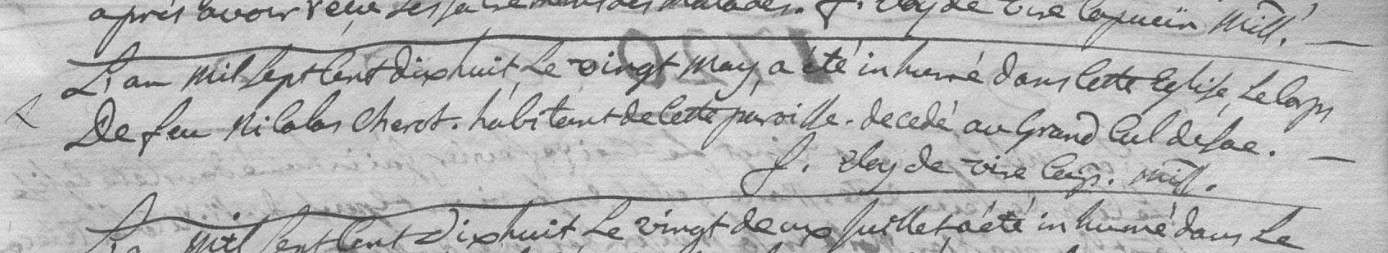 après avoir reçu les sacremens des malades. f. eloy de vire capucin miss.
L'an mil sept cent dix huit, le vingt may, a été inhumé dans cette Eglise, le corps
De feu Nicolas Cherot. habitant de cette paroisse. decedé au Grand Cul de sac.
f. eloy de vire cap. miss.
L'an mil sept cent dix huit le vingt deux juillet a été inhumé dans le